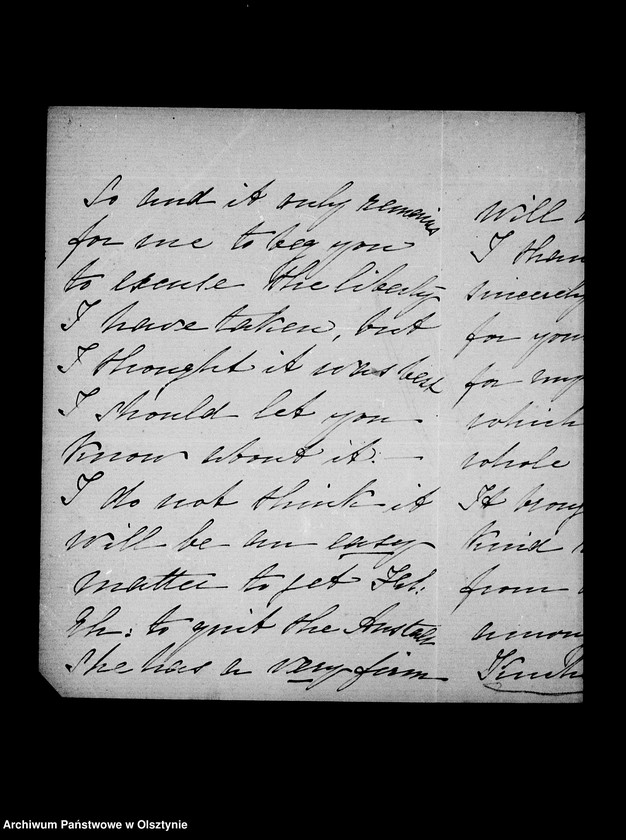 So and it only remains
for me to beg you
to excuse the liberty
I have taken, but
I thought it was best
I should let you
know about it. —
I do not think it
will be an easy
matter to get Frl.
Eh: to quit the Anstalt
She has a very firm
will
I than
sincerely
for you
for my
which
whole
It broug
kind
from
amon
Archiwum Państwowe w Olsztynie